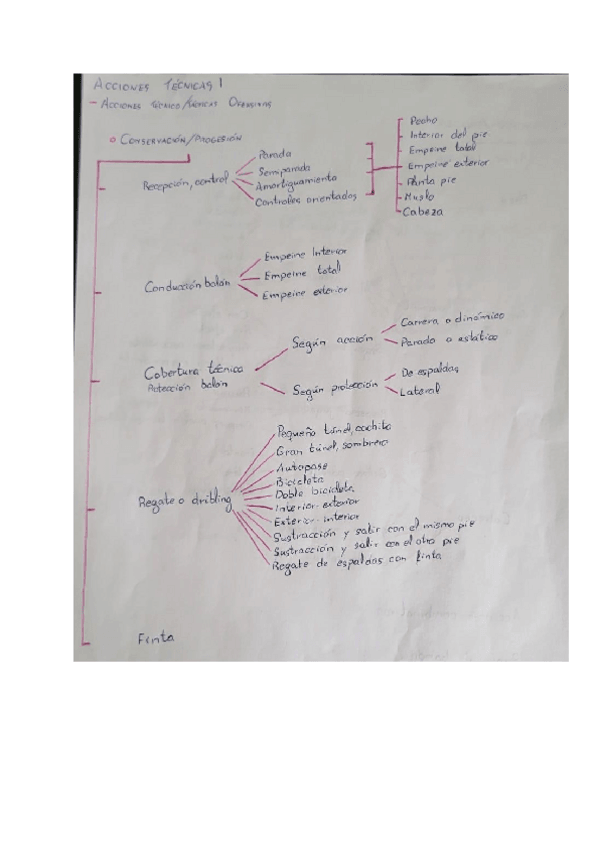 ACCIONES TÉCNICAS 1
- ACCIONES TÉCNICO/TÁCTICAS OFENSIVAS
CONSERVACIÓN/PROGRESIÓN
Recepción, control
Parada
Semiparada
Amortiguamiento
Controles orientados
Pecho
Interior del pie
Empeine total
Empeine exterior
Planta pie
Muslo
Cabeza
Conducción balón
Empeine Interior
Empeine total
Empeine exterior
Cobertura técnica
Protección balón
Según acción
Carrera o dinámico
Parado o estático
Según protección
De espaldas
Lateral
Regate o dribling
Pequeño túnel, cochito
Gran túnel, sombrero
Autopase
Bicicleta
Doble bicicleta
Interior-exterior
Exterior-interior
Sustracción y salir con el mismo pie
Sustracción y salir con el otro pie
Regate de espaldas con finta
Finta